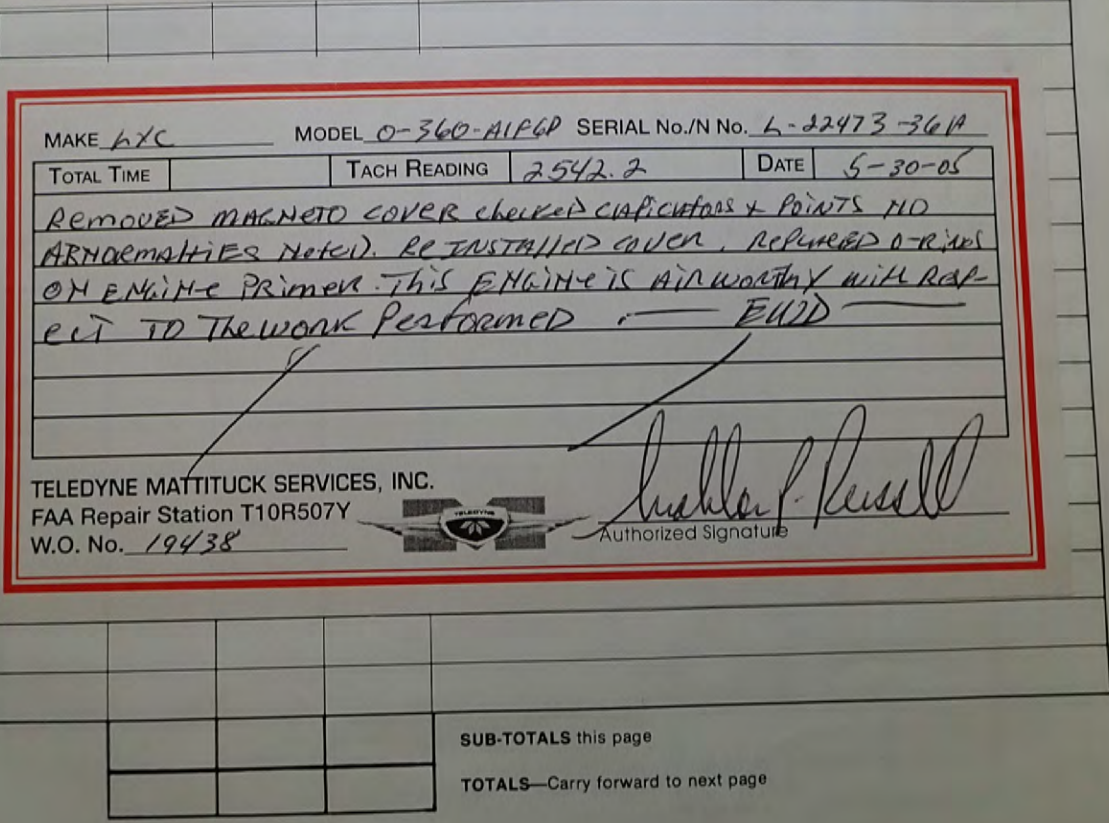 MAKE LYC MODEL O-360-A1F6D SERIAL No./N No. L-22473-36A
TOTAL TIME TACH READING 2542.2 DATE 5-30-05
Removed MAGNETO COVER checked CAPICITORS & POINTS NO
ABNORMALTIES Noted. RE INSTALLED COVER. REPLACED O-RINGS
ON ENGINE PRIMER. This ENGINE is AIRWORTHY with RESP-
ECT TO The WORK PERFORMED.
TELEDYNE MATTITUCK SERVICES, INC.
FAA Repair Station T10R507Y
W.O. No. 19438
TELEDYNE
Authorized Signature
SUB-TOTALS this page
TOTALS—Carry forward to next page